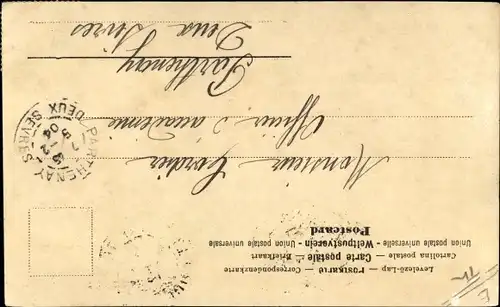 Levelező-Lap — Postkarte — Correspondenzkarte
Cartolina postale — Carte postale — Briefkaart
Union postale universelle - Weltpostverein - Union postale universale
Postcard
Monsieur Cordier
Officier d'académie
Parthenay
Deux Sèvres
PARTHENAY
DEUX-SÈVRES
04